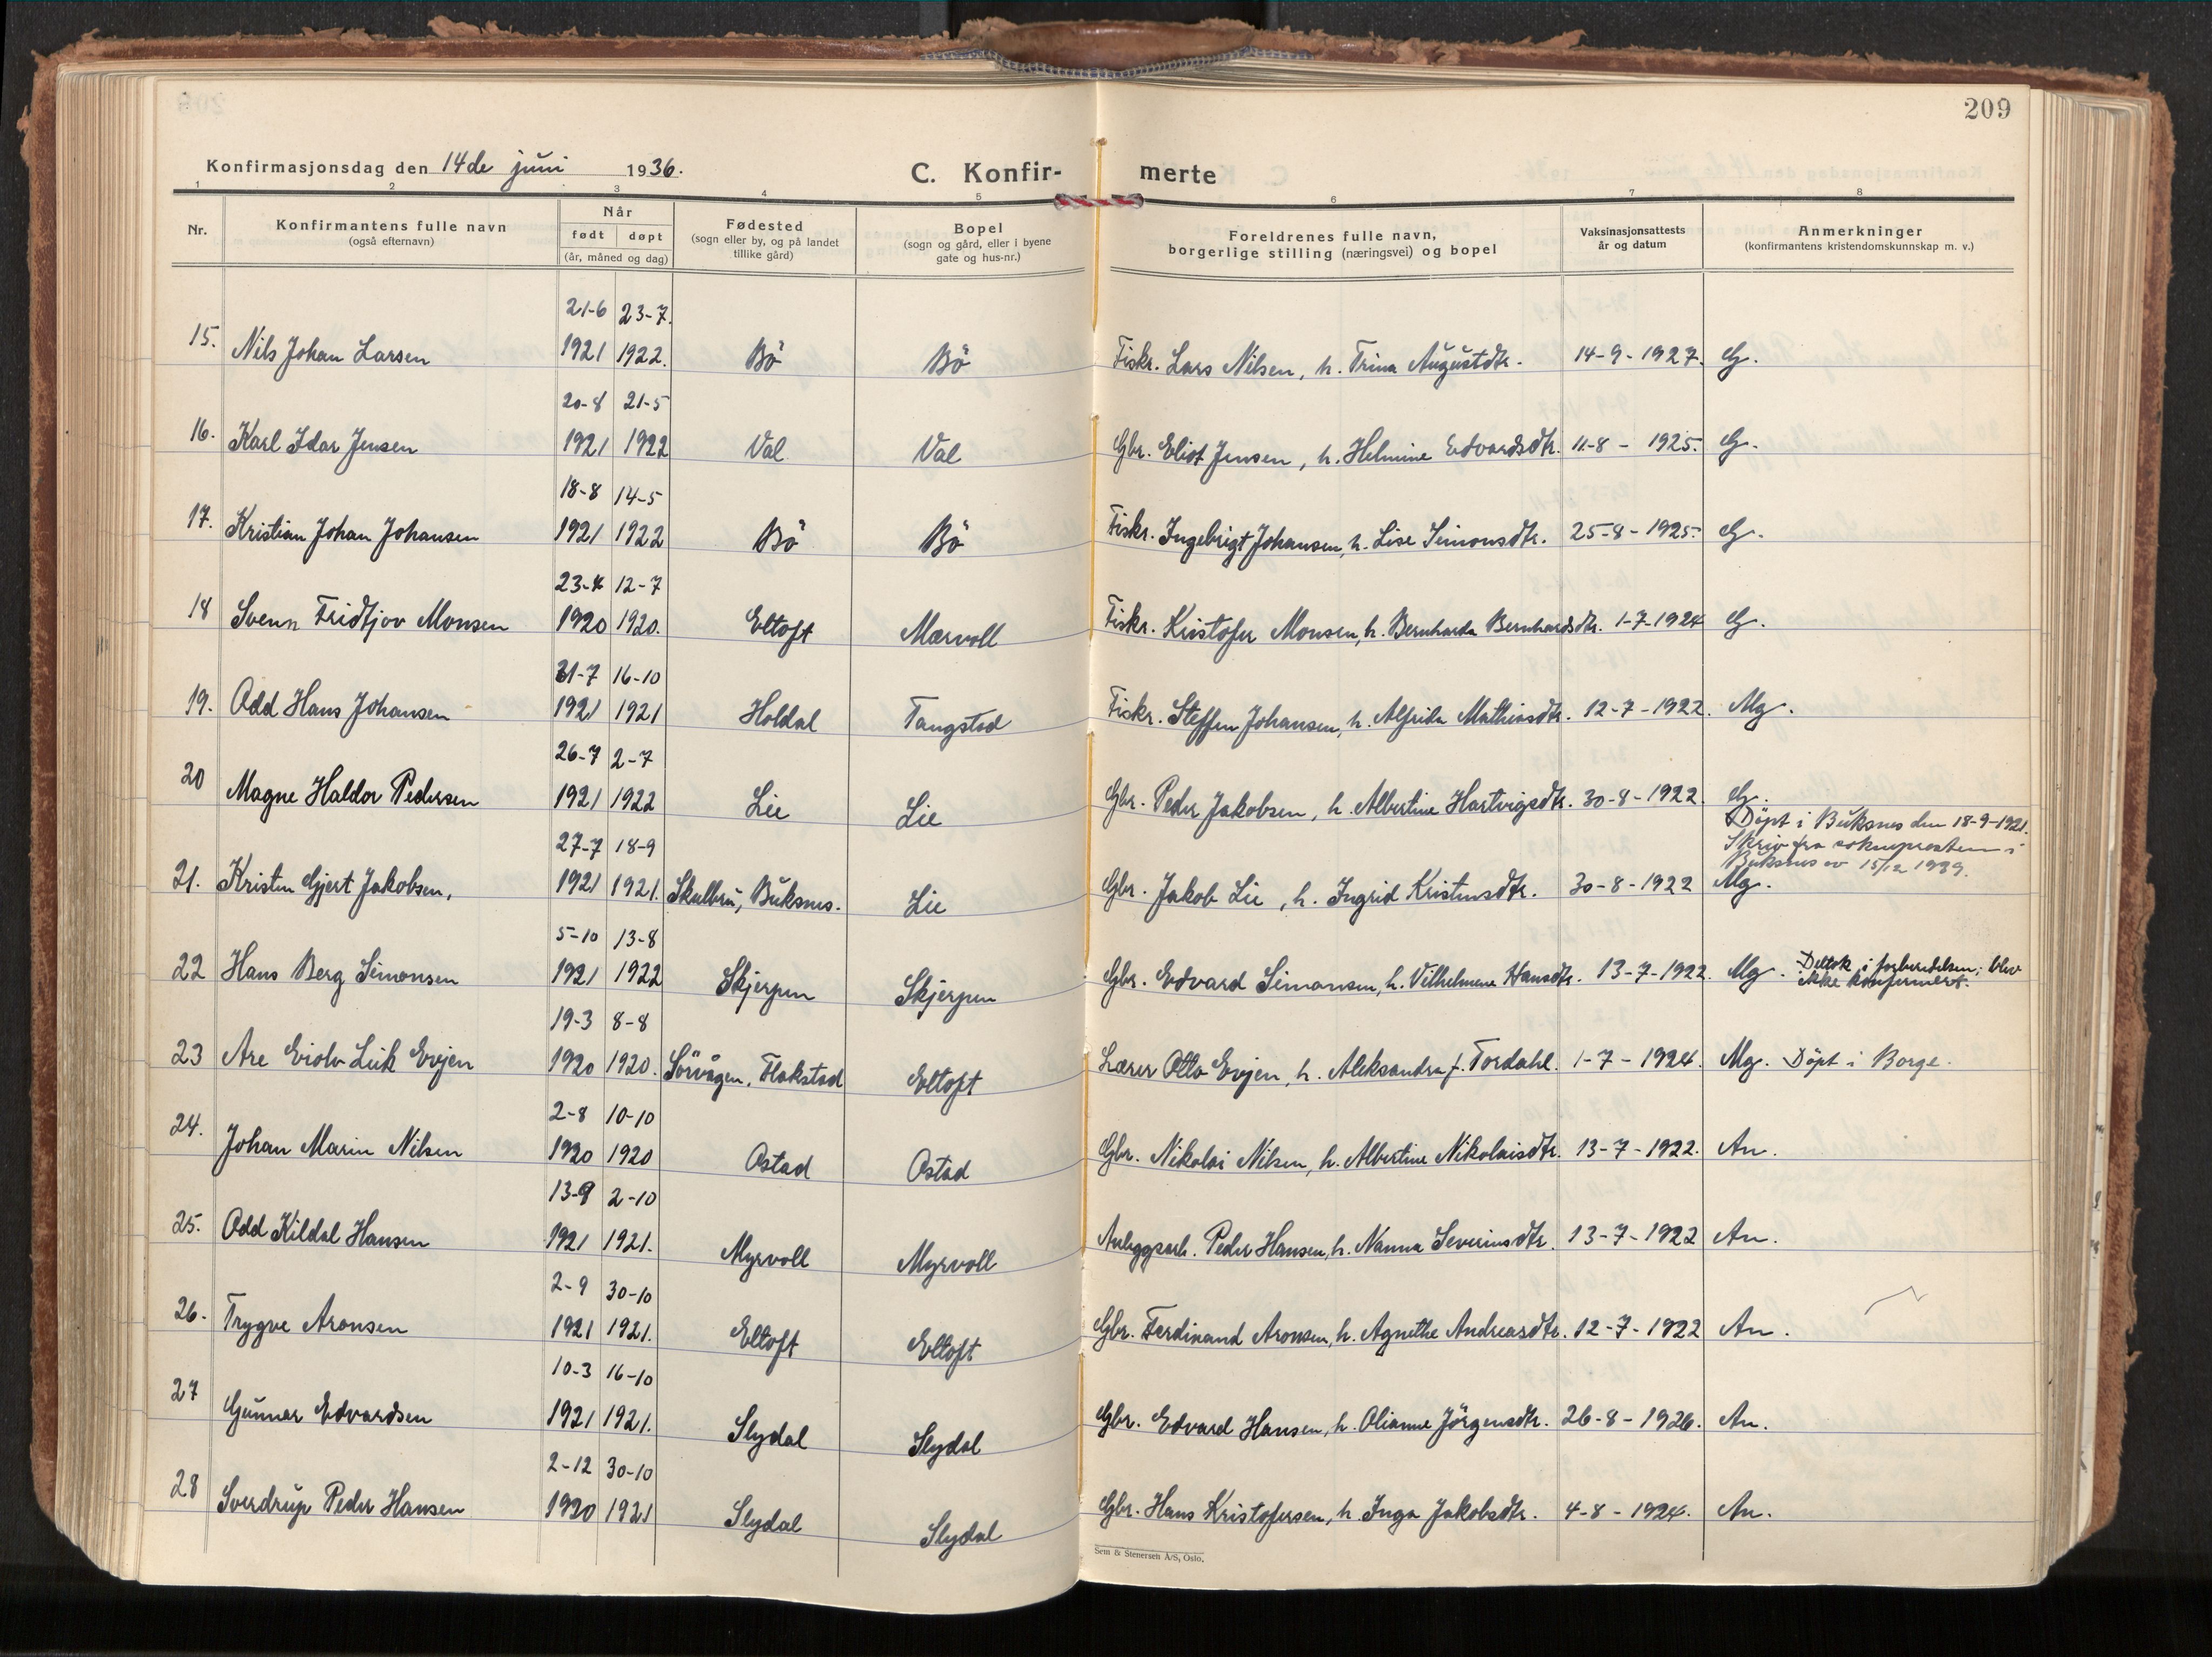 209
Konfirmasjonsdag den 14de juni 1936.
C. Konfir- merte
1 2 3 4 5 6 7 8
Nr.
Konfirmantens fulle navn
(også efternavn)
Når
født døpt
(år, måned og dag)
Fødested
(sogn eller by, og på landet
tillike gård)
Bopel
(sogn og gård, eller i byene
gate og hus-nr.)
Foreldrenes fulle navn,
borgerlige stilling (næringsvei) og bopel
Vaksinasjonsattests
år og datum
Anmerkninger
(konfirmantens kristendomskunnskap m. v.)
21-6 23-7.
15. Nils Johan Larsen 1921 1922. Bö Bö Fiskr. Lars Nilsen, h. Trina Augustdtr. 14-9-1927. G.
20-8 21-5
16. Karl Idar Jensen 1921 1922 Val Val Gbr. Eliot Jensen, h. Helmine Edvardsdtr. 11-8-1925. G.
18-8 14-5
17. Kristian Johan Johansen 1921 1922 Bö Bö Fiskr. Ingebrigt Johansen, h. Lise Simonsdtr. 25-8-1925. G.
23-4 12-7
18 Svenn Fridtjov Monsen 1920 1920. Eltoft Mærvoll Fiskr. Kristofer Monsen, h. Bernharda Bernhardsdtr. 1-7-1924 G.
31-7 16-10
19. Odd Hans Johansen 1921 1921 Holdal Tangstad Fiskr. Steffen Johansen, h. Alfrida Mathiasdtr. 12-7-1922. Mg.
26-7 2-7
20 Magne Haldor Pedersen 1921 1922 Lie Lie Gbr. Peder Jakobsen, h. Albertine Hartvigsdtr. 30-8-1922. G.
Döpt i Buksnes den 18-9-1921.
Skriv fra soknepresten i
Buksnes av 15/12 1939.
27-7 18-9
21. Kristen Gjert Jakobsen, 1921 1921. Skulbru, Buksnes. Lie Gbr. Jakob Lie, h. Ingrid Kristensdtr. 30-8-1922 Mg.
5-10 13-8
22 Hans Berg Simonsen 1921 1922 Skjerpen Skjerpen Gbr. Edvard Simonsen, h. Vilhelmene Hansdtr. 13-7-1922. Mg. Deltok i forberedelsen; blev
ikke konfirmert.
19-3 8-8
23 Are Eiolv Liik Evjen 1920 1920. Sörvågen, Flakstad Eltoft Lærer Otto Evjen, h. Aleksandra f. Tordahl. 1-7-1924. Mg. Döpt i Borge.
2-8 10-10
24. Johan Marin Nilsen 1920 1920 Ostad Ostad Gbr. Nikolai Nilsen, h. Albertine Nikolaisdtr. 13-7-1922. An.
13-9 2-10
25. Odd Kildal Hansen 1921 1921. Myrvoll Myrvoll Anleggsarb. Peder Hansen, h. Nanna Severinsdtr. 13-7-1922 An.
2-9 30-10
26. Trygve Aronsen 1921 1921. Eltoft Eltoft Gbr. Ferdinand Aronsen, h. Agnethe Andreasdtr. 12-7-1922 An.
10-3 16-10
27 Gunnar Edvardsen 1921 1921. Slydal Slydal Gbr. Edvard Hansen, h. Olianne Jörgensdtr. 26-8-1926. An.
2-12 30-10
28 Sverdrup Peder Hansen 1920 1921 Slydal Slydal Gbr. Hans Kristofersen, h. Inga Jakobsdtr. 4-8-1924. An.
Sem & Stenersen A/S, Oslo.